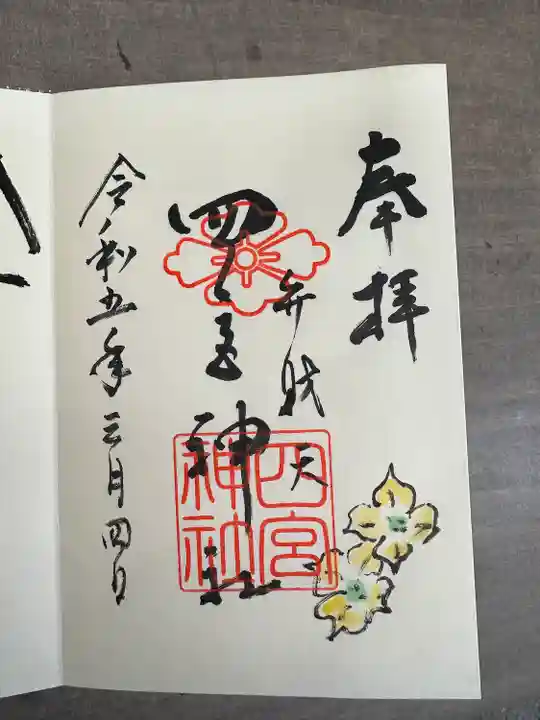 奉拝
弁財天
四宮神社
四宮神社
令和五年三月四日